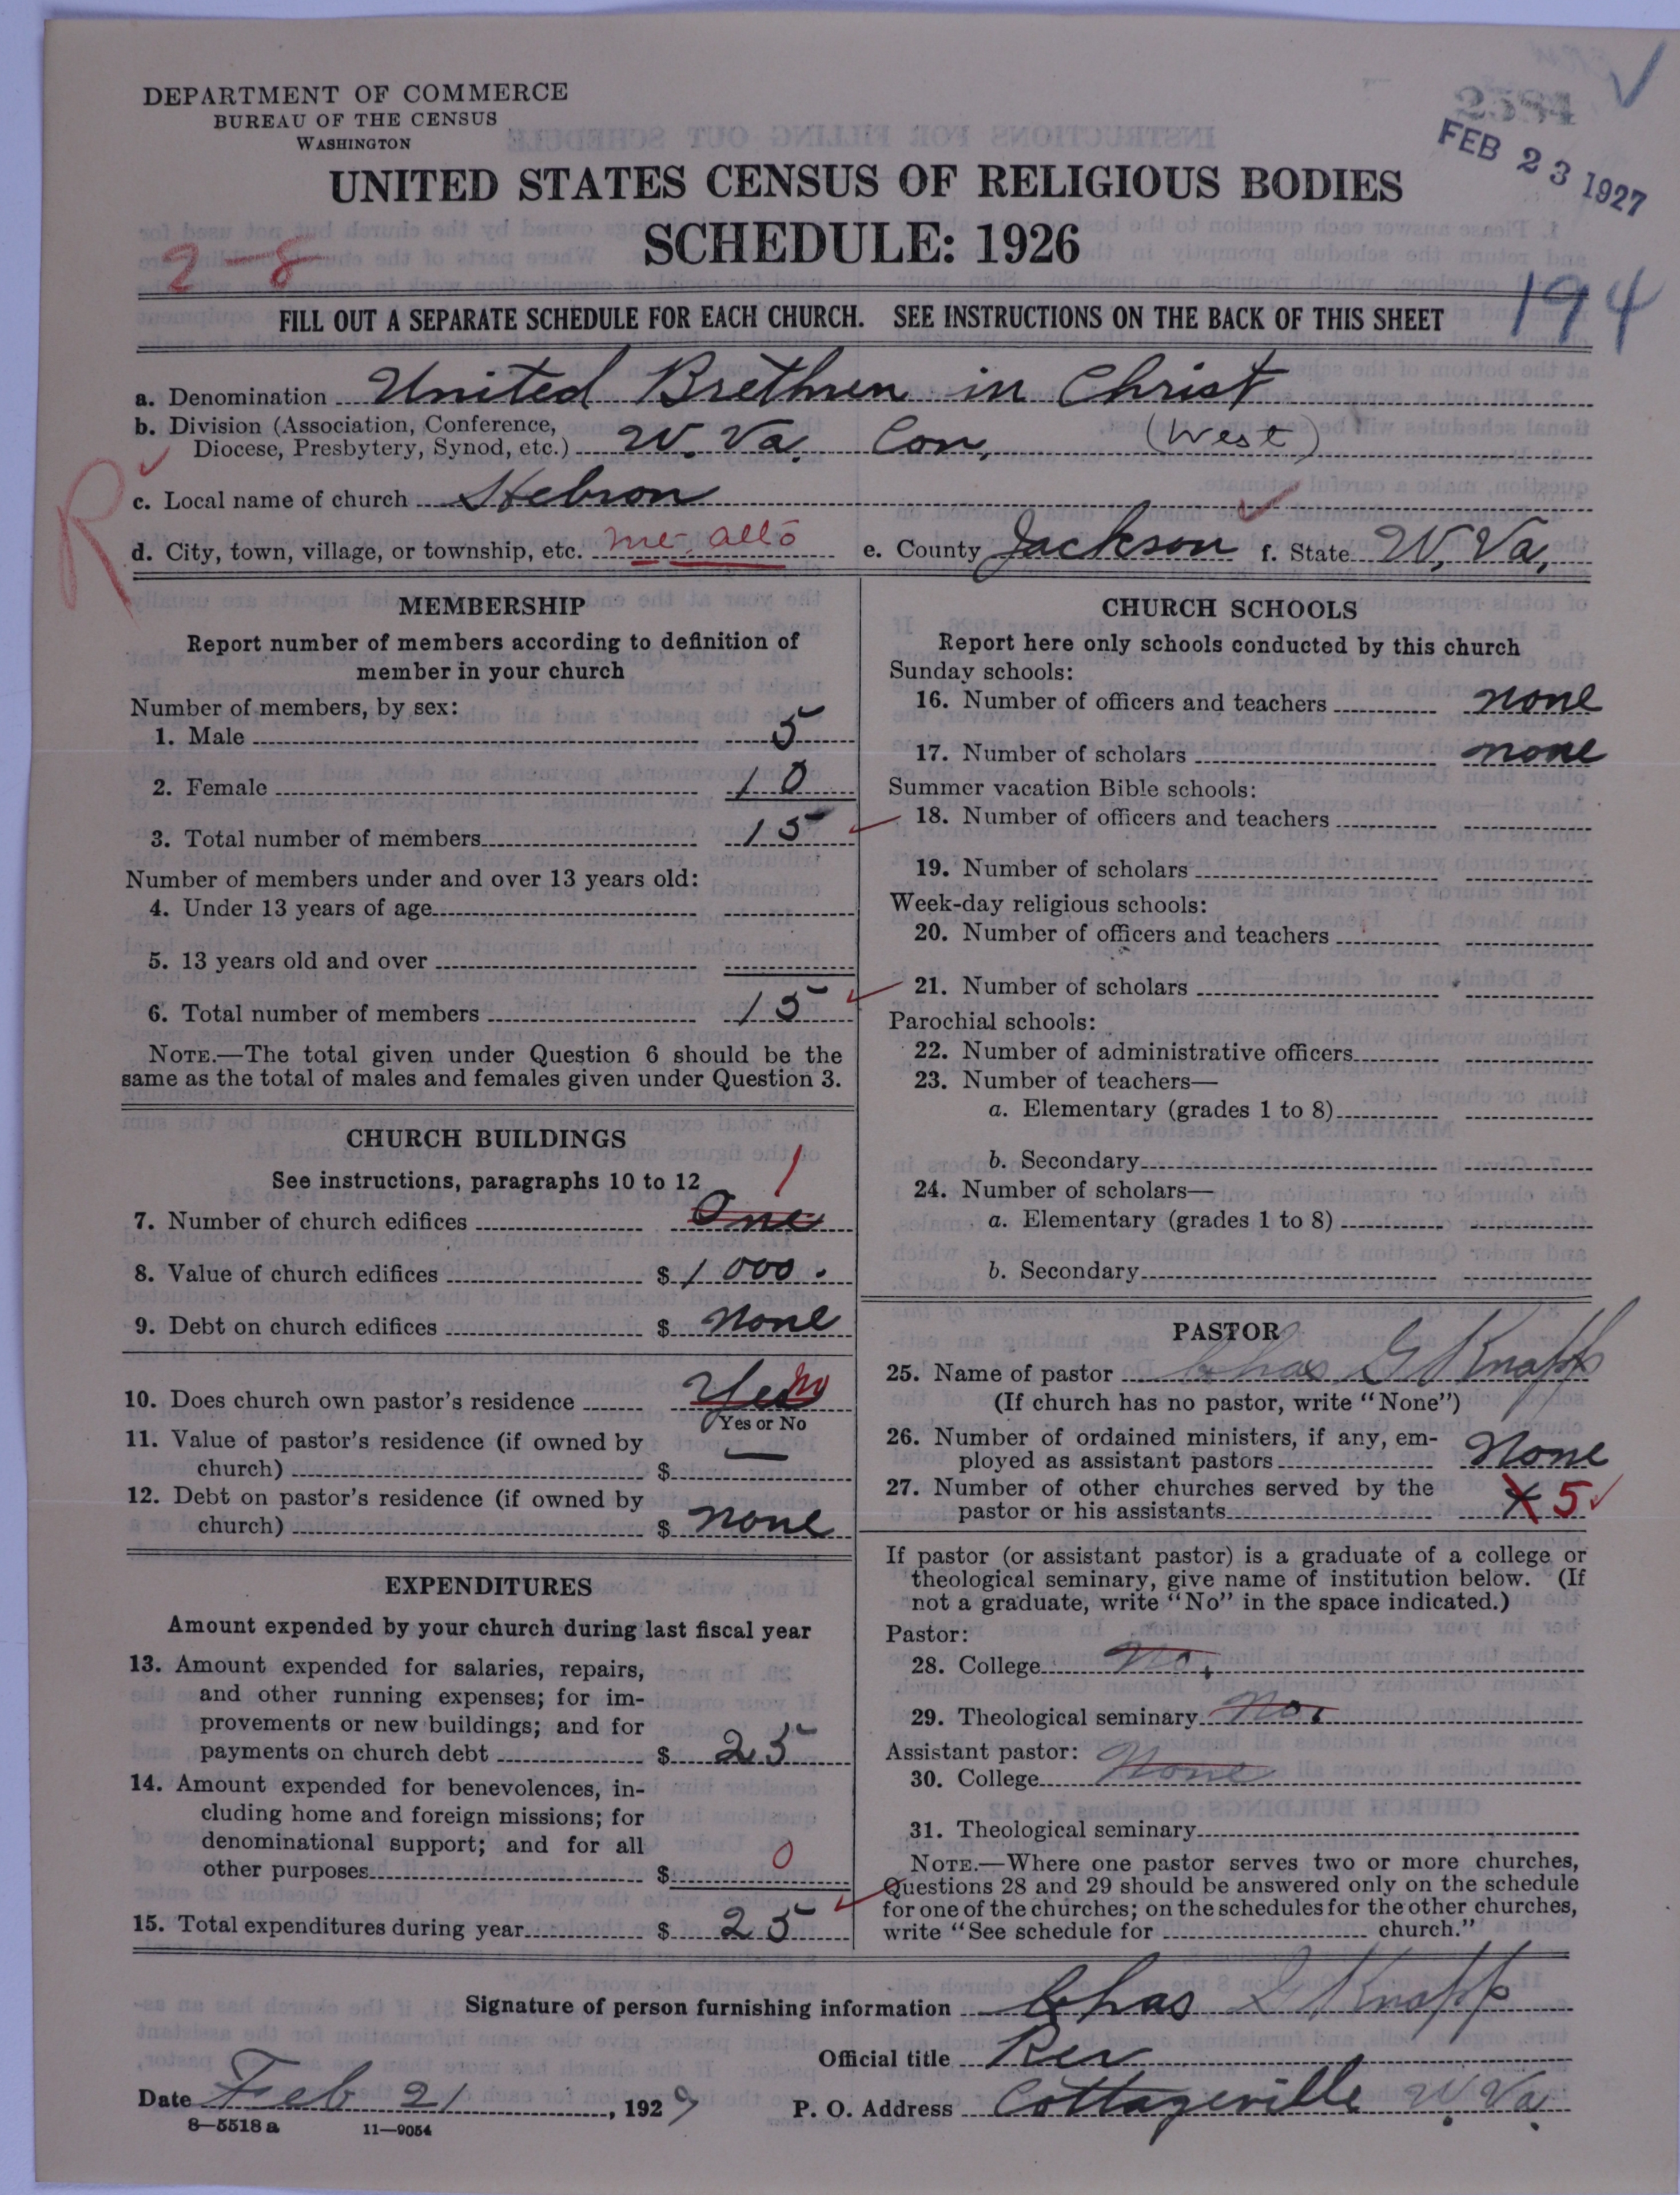 DEPARTMENT OF COMMERCE
BUREAU OF THE CENSUS
WASHINGTON
2584
FEB 23 1927
UNITED STATES CENSUS OF RELIGIOUS BODIES
SCHEDULE: 1926
2-8
194
FILL OUT A SEPARATE SCHEDULE FOR EACH CHURCH. SEE INSTRUCTIONS ON THE BACK OF THIS SHEET
a. Denomination United Brethren in Christ
b. Division (Association, Conference,
Diocese, Presbytery, Synod, etc.) W. Va. Con, (West)
R
c. Local name of church Hebron
d. City, town, village, or township, etc. Mt. Alto e. County Jackson f. State W. Va,
MEMBERSHIP
Report number of members according to definition of
member in your church
Number of members, by sex:
1. Male 5
2. Female 10
3. Total number of members 15
Number of members under and over 13 years old:
4. Under 13 years of age
5. 13 years old and over
6. Total number of members 15
NOTE.—The total given under Question 6 should be the
same as the total of males and females given under Question 3.
CHURCH BUILDINGS
See instructions, paragraphs 10 to 12
7. Number of church edifices One 1
8. Value of church edifices $ 1000.
9. Debt on church edifices $ None
10. Does church own pastor's residence Yes No
Yes or No
11. Value of pastor's residence (if owned by
church) $ —
12. Debt on pastor's residence (if owned by
church) $ None
EXPENDITURES
Amount expended by your church during last fiscal year
13. Amount expended for salaries, repairs,
and other running expenses; for im-
provements or new buildings; and for
payments on church debt $ 25
14. Amount expended for benevolences, in-
cluding home and foreign missions; for
denominational support; and for all
other purposes $ 0
15. Total expenditures during year $ 25
CHURCH SCHOOLS
Report here only schools conducted by this church
Sunday schools:
16. Number of officers and teachers none
17. Number of scholars none
Summer vacation Bible schools:
18. Number of officers and teachers
19. Number of scholars
Week-day religious schools:
20. Number of officers and teachers
21. Number of scholars
Parochial schools:
22. Number of administrative officers
23. Number of teachers—
a. Elementary (grades 1 to 8)
b. Secondary
24. Number of scholars—
a. Elementary (grades 1 to 8)
b. Secondary
PASTOR
25. Name of pastor Chas G Knapp
(If church has no pastor, write "None")
26. Number of ordained ministers, if any, em-
ployed as assistant pastors None
27. Number of other churches served by the
pastor or his assistants 5
If pastor (or assistant pastor) is a graduate of a college or
theological seminary, give name of institution below. (If
not a graduate, write "No" in the space indicated.)
Pastor:
28. College No.
29. Theological seminary No.
Assistant pastor:
30. College None
31. Theological seminary
NOTE.—Where one pastor serves two or more churches,
Questions 28 and 29 should be answered only on the schedule
for one of the churches; on the schedules for the other churches,
write "See schedule for church."
Signature of person furnishing information Chas G Knapp
Official title Rev
Date Feb 21, 1927 P. O. Address Cottageville W. Va.
8—5518a 11—9054